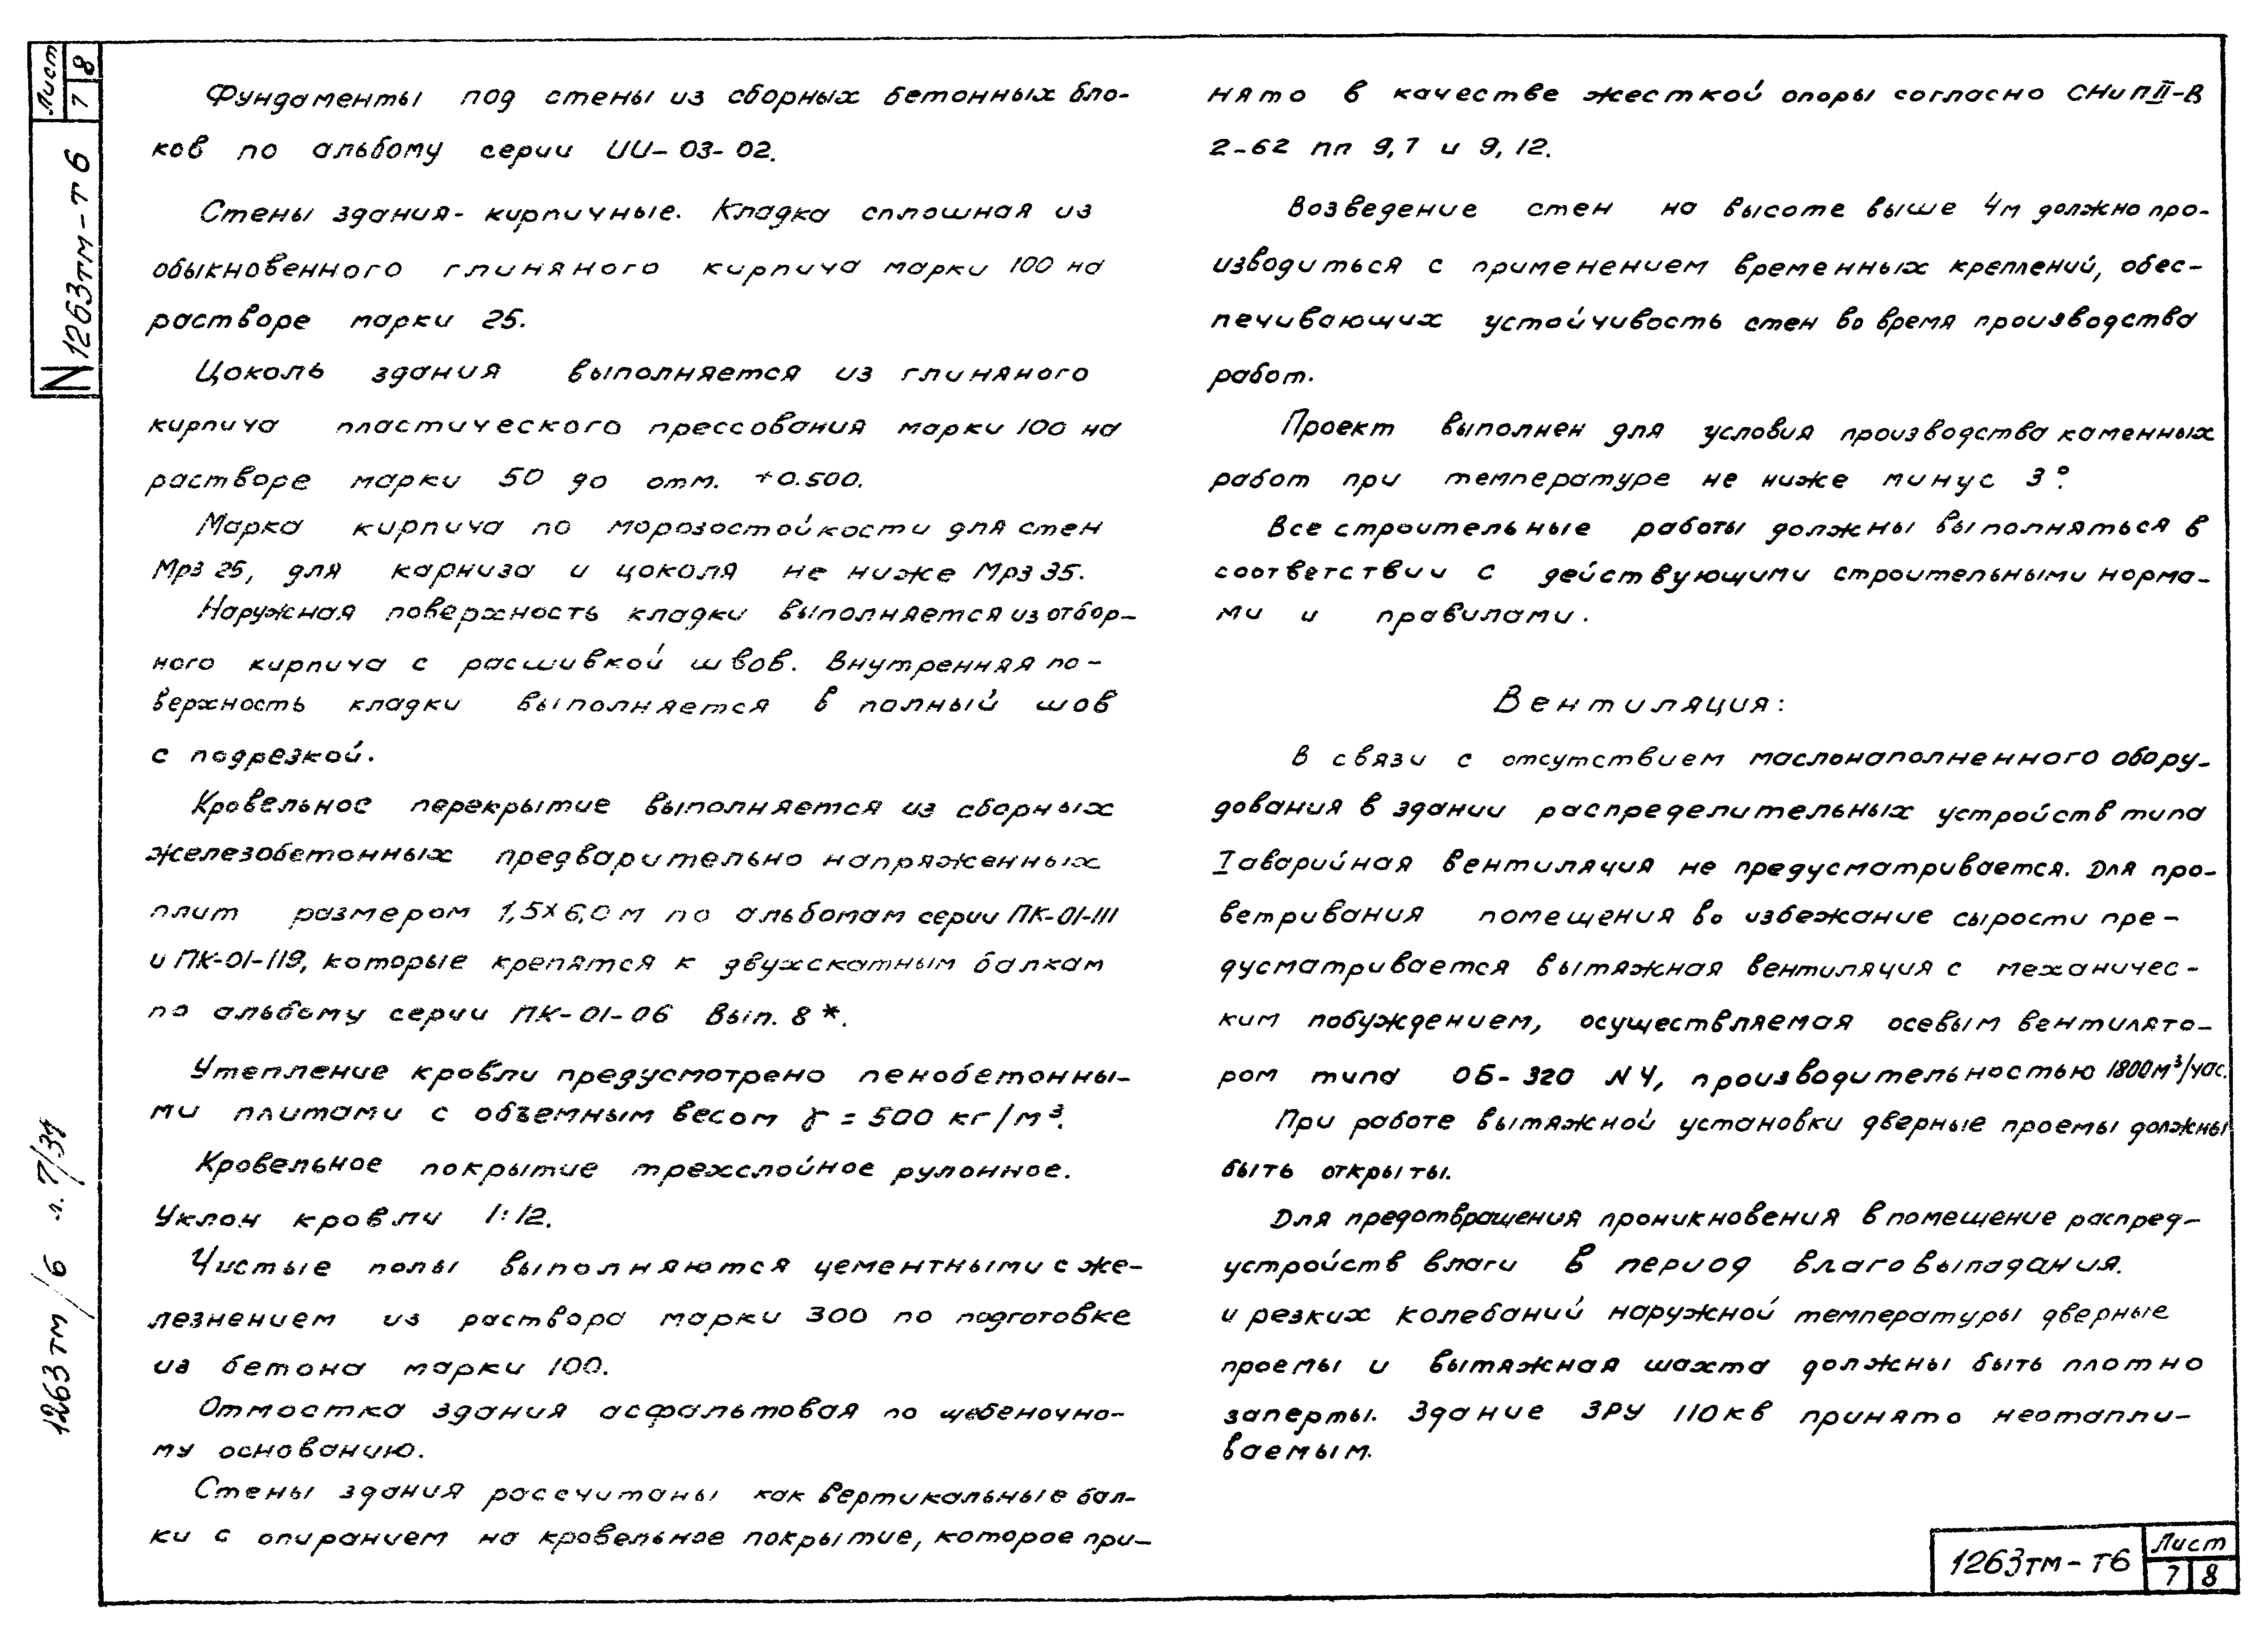 Лист
7 8
N 1263тм-т6
1263тм/6 л. 7/39
Фундаменты под стены из сборных бетонных бло-
ков по альбому серии ИИ-03-02.
Стены здания - кирпичные. Кладка сплошная из
обыкновенного глиняного кирпича марки 100 на
растворе марки 25.
Цоколь здания выполняется из глиняного
кирпича пластического прессования марки 100 на
растворе марки 50 до отм. +0.500.
Марка кирпича по морозостойкости для стен
Мрз 25, для карниза и цоколя не ниже Мрз 35.
Наружная поверхность кладки выполняется из отбор-
ного кирпича с расшивкой швов. Внутренняя по-
верхность кладки выполняется в полный шов
с подрезкой.
Кровельное перекрытие выполняется из сборных
железобетонных предварительно напряженных
плит размером 1,5х6,0м по альбомам серии ПК-01-111
и ПК-01-119, которые крепятся к двухскатным балкам
по альбому серии ПК-01-06 Вып. 8*.
Утепление кровли предусмотрено пенобетонны-
ми плитами с объемным весом γ = 500 кг/м³.
Кровельное покрытие трехслойное рулонное.
Уклон кровли 1:12.
Чистые полы выполняются цементными с же-
лезнением из раствора марки 300 по подготовке
из бетона марки 100.
Отмостка здания асфальтовая по щебеночно-
му основанию.
Стены здания рассчитаны как вертикальные бал-
ки с опиранием на кровельное покрытие, которое при-
нято в качестве жесткой опоры согласно СНиП II-В
2-62 пп 9,7 и 9,12.
Возведение стен на высоте выше 4м должно про-
изводиться с применением временных креплений, обес-
печивающих устойчивость стен во время производства
работ.
Проект выполнен для условия производства каменных
работ при температуре не ниже минус 3°.
Все строительные работы должны выполняться в
соответствии с действующими строительными норма-
ми и правилами.
Вентиляция:
В связи с отсутствием маслонаполненного обору-
дования в здании распределительных устройств типа
I аварийная вентиляция не предусматривается. Для про-
ветривания помещения во избежание сырости пре-
дусматривается вытяжная вентиляция с механичес-
ким побуждением, осуществляемая осевым вентилято-
ром типа ОБ-320 N4, производительностью 1800м³/час.
При работе вытяжной установки дверные проемы должны
быть открыты.
Для предотвращения проникновения в помещение распред-
устройств влаги в период влаговыпадания.
и резких колебаний наружной температуры дверные
проемы и вытяжная шахта должны быть плотно
заперты. Здание ЗРУ 110кв принято неотапли-
ваемым.
1263тм-т6
Лист
7 8